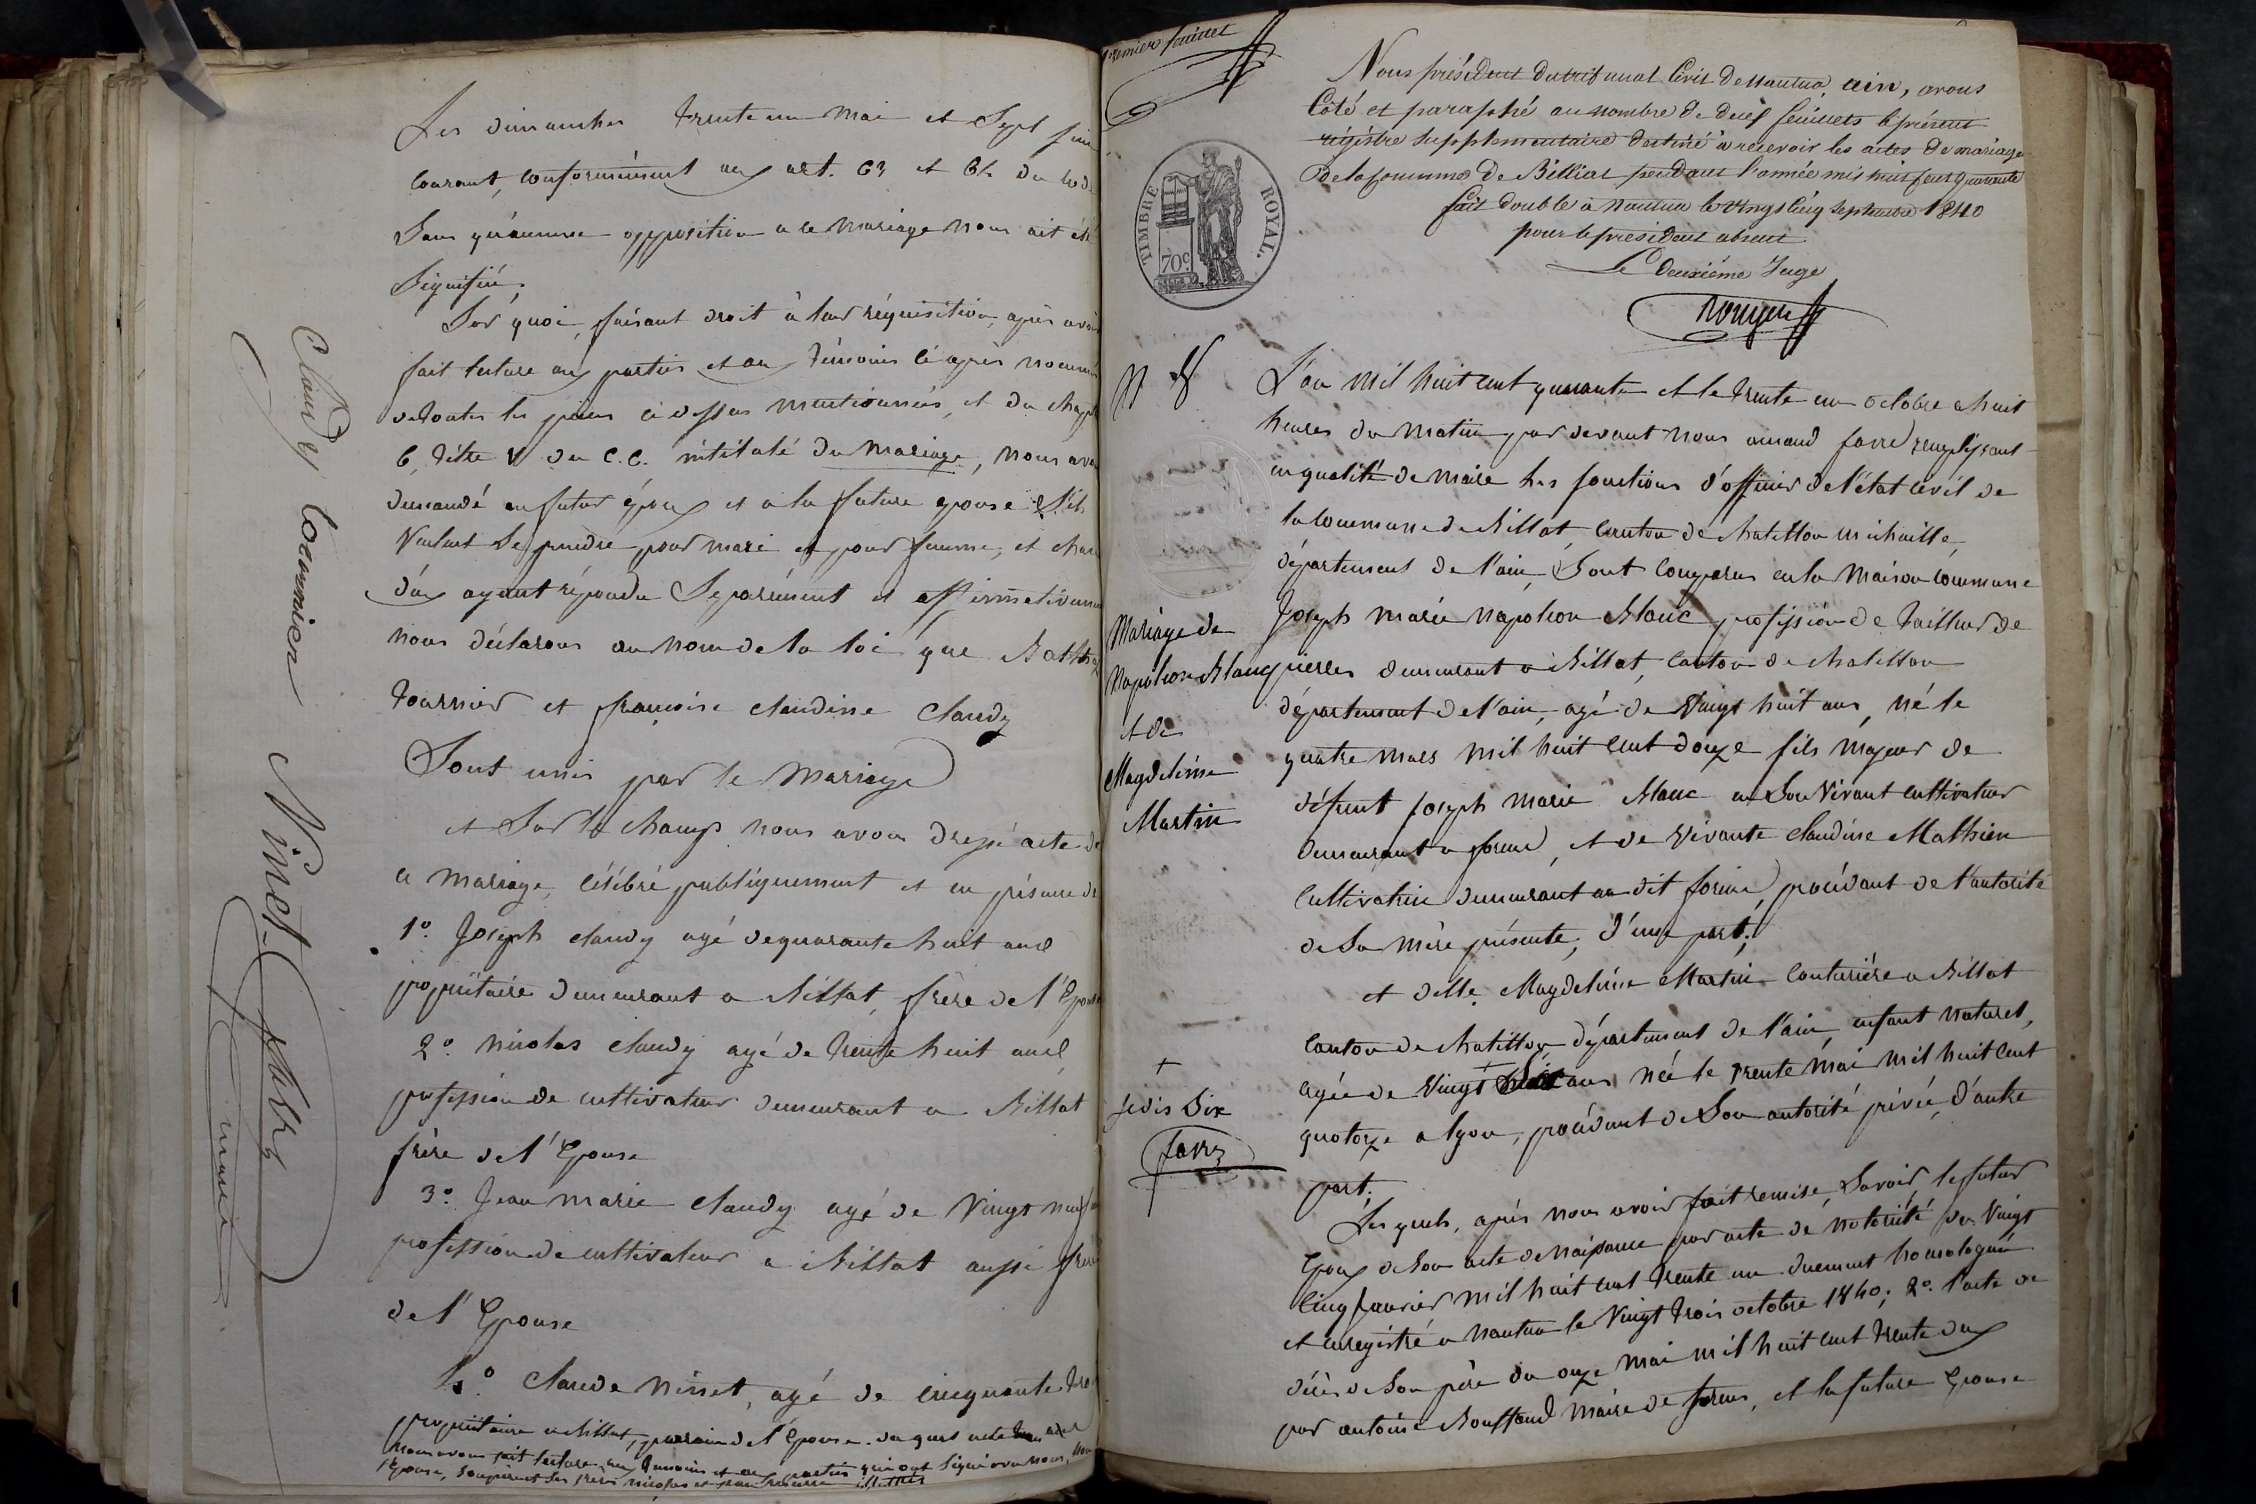 Les dimanches trente un mai et Sept juin
courant, conformément aux art. 63 et 64 du code
Sans qu'aucune opposition a ce mariage nous ait été
Signifiée.
Sur quoi, faisant droit à leur réquisition, après avoir
fait lecture aux parties et aux témoins ci après nommés
de toutes les pièces ci dessus mentionnées, et du chapitre
6, titre V du C.C. intitulé du mariage, nous avons
demandé au futur époux et a la future épouse s'ils
Veulent Se prendre pour mari et pour femme, et chacun
d'eux ayant répondu Séparément et affirmativement
nous déclarons au nom de la loi que
tournier et françoise claudine Claudy
Sont unis par le mariage
et Sur le champ nous avons dressé acte de
ce mariage, célébré publiquement et en présence de
1º. Joseph claudy agé de quarante huit ans
propriétaire demeurant a Billat, frère de l'Epouse
2º. nicolas claudy agé de trente huit ans
profession de cultivateur demeurant a Billat
frère de l'Epouse
3º. Jean marie claudy agé de Vingt neuf
profession de cultivateur a Billat aussi frère
de l'Epouse
4º. Claude ninet, agé de cinquante
propriétaire a Billat, parrain de l'Epouse. du quel acte
nous avons fait lecture aux témoins et aux parties qui ont signé avec nous, non
l'Epouse, ses frères nicolas et Jean marie illettrés
Claudy tournier Ninet
maire
premier feuillet
Nous président du tribunal Civil de Nantua, ain, avons
Coté et paraphé au nombre de deux feuillets le présent
régistre supplémentaire destiné à recevoir les actes de mariage
de la Commune de Billiat pendant l'année mil huit cent quarante
fait double à Nantua le vingt cinq septembre 1840
pour le président absent
Le deuxième Juge
TIMBRE ROYAL.
70c
N 8
L'an mil huit cent quarante et le trente un octobre a huit
heures du matin par devant nous amand favre remplissant
en qualité de maire les fonctions d'officier de l'état civil de
la commune de Billat, canton de chatillon michaille,
département de l'ain, Sont comparus en la maison commune
Joseph marie napoléon Blanc profession de tailleur de
pierres demeurant a Billat, canton de chatillon
département de l'ain, agé de Vingt huit ans, né le
quatre mars mil huit cent douze fils majeur de
défunt joseph marie Blanc en Son Vivant cultivateur
demeurant a forens, et de Vivante claudine Mathieu
cultivatrice demeurant au dit forens, procédant de l'autorité
de Sa mère présente, d'une part;
Mariage de
Napoléon Blanc
et de
Magdeleine
Martin
et delle. Magdeleine Martin couturière a Billat
canton de chatillon, département de l'ain, enfant naturel,
agée de Vingt + Six ans née le trente mai mil huit cent
quatorze a lyon, procédant de Son autorité privée, d'autre
part.
+
je dis Six
favre
Les quels, après nous avoir fait remise, Savoir le futur
Epoux de Son acte de naissance par acte de notoriété du Vingt
cinq janvier mil huit cent trente un duement homologué
et enregistré a nantua le Vingt trois octobre 1840; 2º. l'acte de
décès de Son père du onze mai mil huit cent trente deux
par antoine maire de forens, et la future Epouse